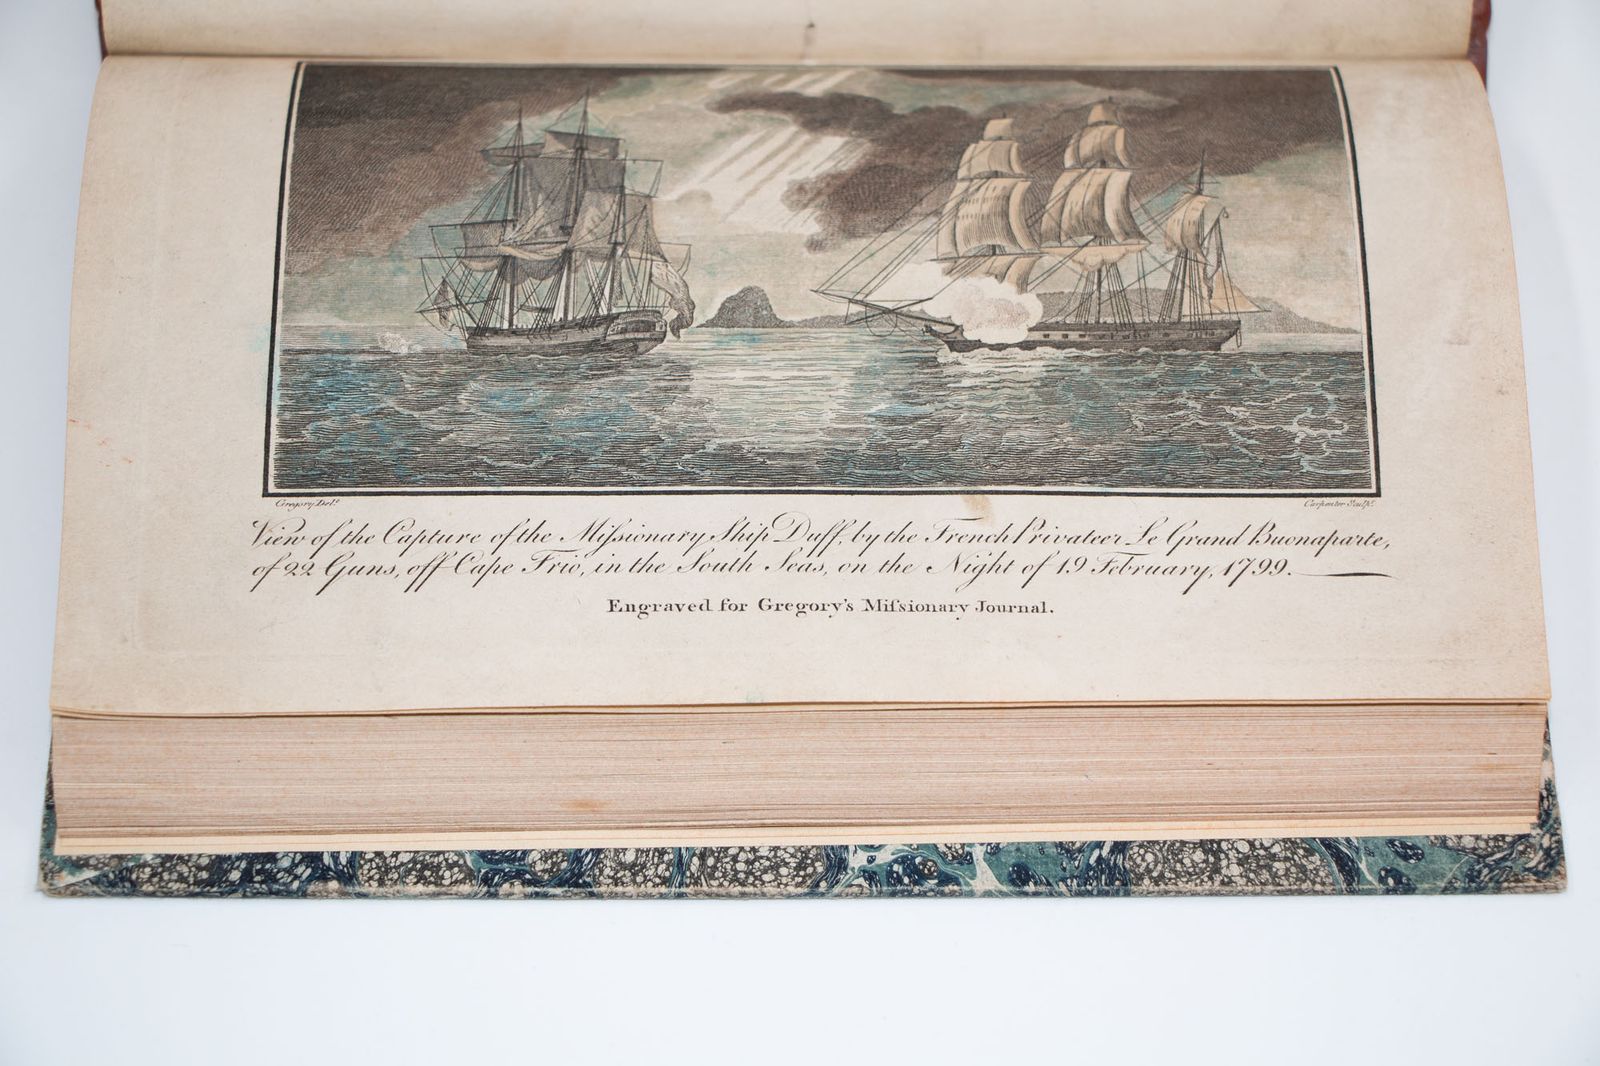 Gregory Delt.
Carpenter Sculpt.
View of the Capture of the Miſsionary Ship Duff, by the French Privateer Le Grand Buonaparte,
of 22 Guns, off Cape Frio, in the South Seas, on the Night of 19 February, 1799.
Engraved for Gregory's Miſsionary Journal.